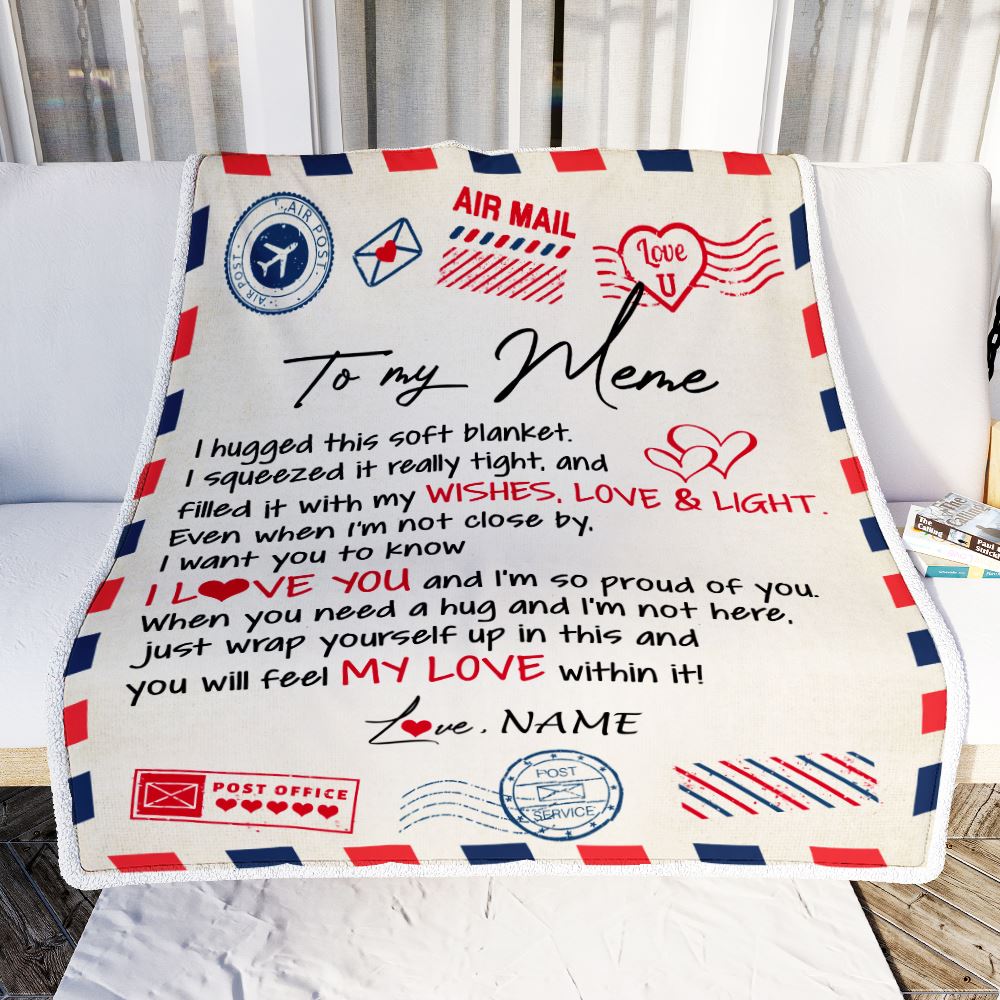 AIR POST
AIR POST
AIR MAIL
Love
U
To my Meme
I hugged this soft blanket.
I squeezed it really tight, and
filled it with my WISHES, LOVE & LIGHT.
Even when I'm not close by,
I want you to know
I LOVE YOU and I'm so proud of you.
When you need a hug and I'm not here,
just wrap yourself up in this and
you will feel MY LOVE within it!
Love, NAME
POST OFFICE
POST
SERVICE
The
Calling
Paul